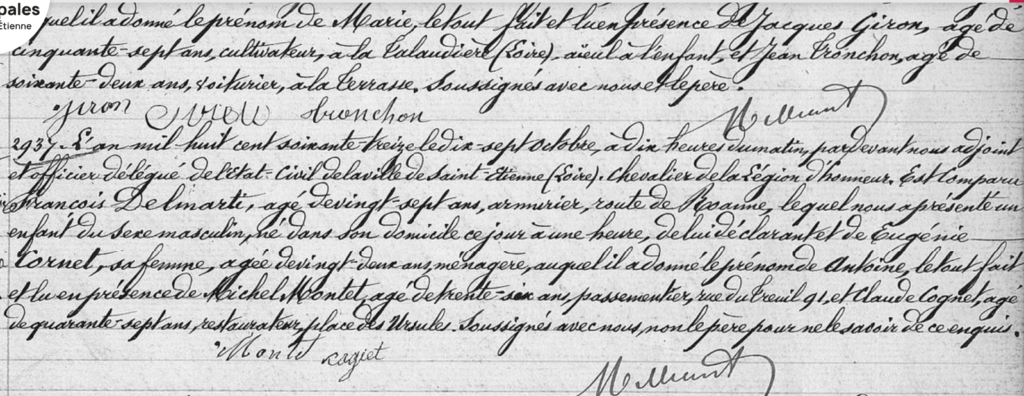 pales
Étienne
quel il a donné le prénom de Marie, le tout fait et lu en présence de Jacques Giron, agé de
cinquante-sept ans, cultivateur, à la Talaudière (Loire), aïeul à l'enfant, et Jean Tronchon, agé de
soixante-deux ans, voiturier, à la Terrasse. Soussignés avec nous et le père.
giron tronchon
2937. L'an mil huit cent soixante-treize le dix-sept Octobre, à dix heures du matin, par devant nous adjoint
et officier délégué de l'Etat-Civil de la ville de Saint-Etienne (Loire). Chevalier de la Légion d'honneur. Est Comparu
François Delmarti, agé de vingt-sept ans, armurier, route de Roanne, lequel nous a présenté un
enfant du sexe masculin, né dans son domicile ce jour à une heure, de lui déclarant et de Eugénie
Cornet, sa femme, agée de vingt-deux ans, ménagère, auquel il a donné le prénom de Antoine, le tout fait
et lu en présence de Michel Montet, agé de trente-six ans, passementier, rue du Treuil 91, et Claude Cognet, agé
de quarante-sept ans, restaurateur, place des Ursules. Soussignés avec nous, non le père pour ne le savoir de ce enquis.